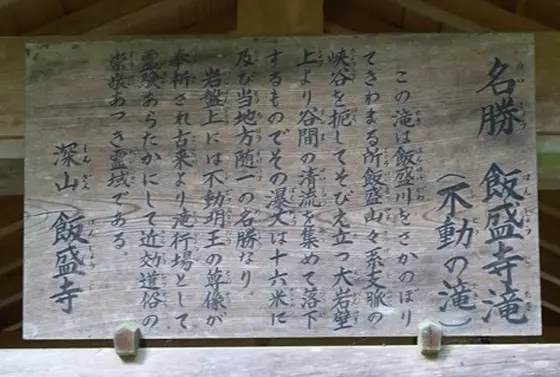 名勝 飯盛寺滝
(不動の滝)
この滝は飯盛川をさかのぼり
てきわまる所飯盛山々系支脈の
峡谷を扼してそびえ立つ大岩壁
上より谷間の清流を集めて落下
するものでその瀑丈は十六米に
及び当地方随一の名勝なり。
岩盤上には不動明王の尊像が
奉祈され古来より滝行場として
霊験あらたかにして近効道俗の
崇敬あつき霊域である。
深山 飯盛寺